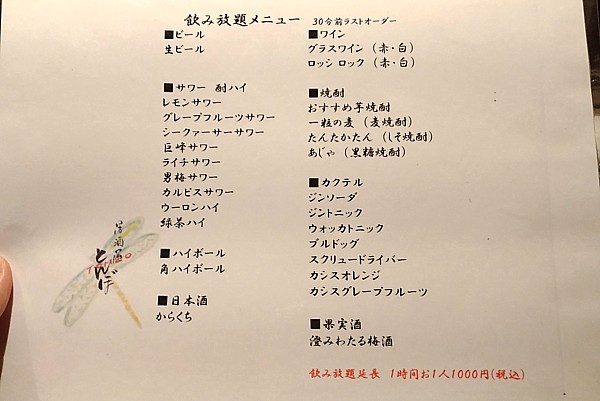 飲み放題メニュー 30分前ラストオーダー
■ビール
生ビール
■サワー 酎ハイ
レモンサワー
グレープフルーツサワー
シークァーサーサワー
巨峰サワー
ライチサワー
男梅サワー
カルピスサワー
ウーロンハイ
緑茶ハイ
■ハイボール
角ハイボール
■日本酒
からくち
■ワイン
グラスワイン（赤・白）
ロッシ ロック（赤・白）
■焼酎
おすすめ芋焼酎
一粒の麦（麦焼酎）
たんたかたん（しそ焼酎）
あじゃ（黒糖焼酎）
■カクテル
ジンソーダ
ジントニック
ウォッカトニック
ブルドッグ
スクリュードライバー
カシスオレンジ
カシスグレープフルーツ
■果実酒
澄みわたる梅酒
飲み放題延長 1時間お1人1000円(税込)
居酒屋
とんぼ